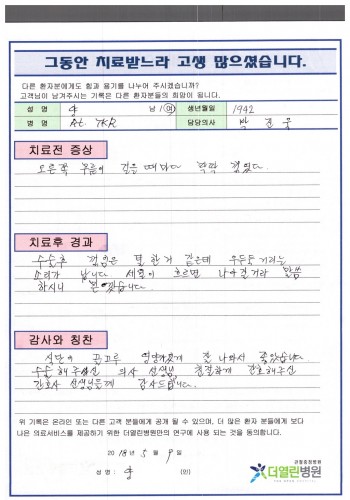 그동안 치료받느라 고생 많으셨습니다.
다른 환자분에게도 힘과 용기를 나누어 주시겠습니까?
고객님이 남겨주시는 기록은 다른 환자분들의 희망이 됩니다.
성 명 남 / 여 생년월일 1942
병 명 Rt. TKR 담당의사 박
치료전 증상
오른쪽 무릎이 걸을 때마다
치료후 경과
수술후 덜 한거 같은데 우두둑 거리는
소리가 납니다 세월이 흐르면 나아질거라 말씀
하시니
감사와 칭찬
식단이 골고루 영양가있게 잘 나와서 좋았습니다.
수술 해주신 의사 선생님, 친절하게 간호해주신
간호사 선생님들께 감사드립니다.
위 기록은 온라인 또는 다른 고객 분들에게 공개 될 수 있으며, 더 많은 환자 분들에게 보다
나은 의료서비스를 제공하기 위한 더열린병원만의 연구에 사용 되는 것을 동의합니다.
2018년 5월 9일
성 명 : (인)
관절중점병원
더열린병원